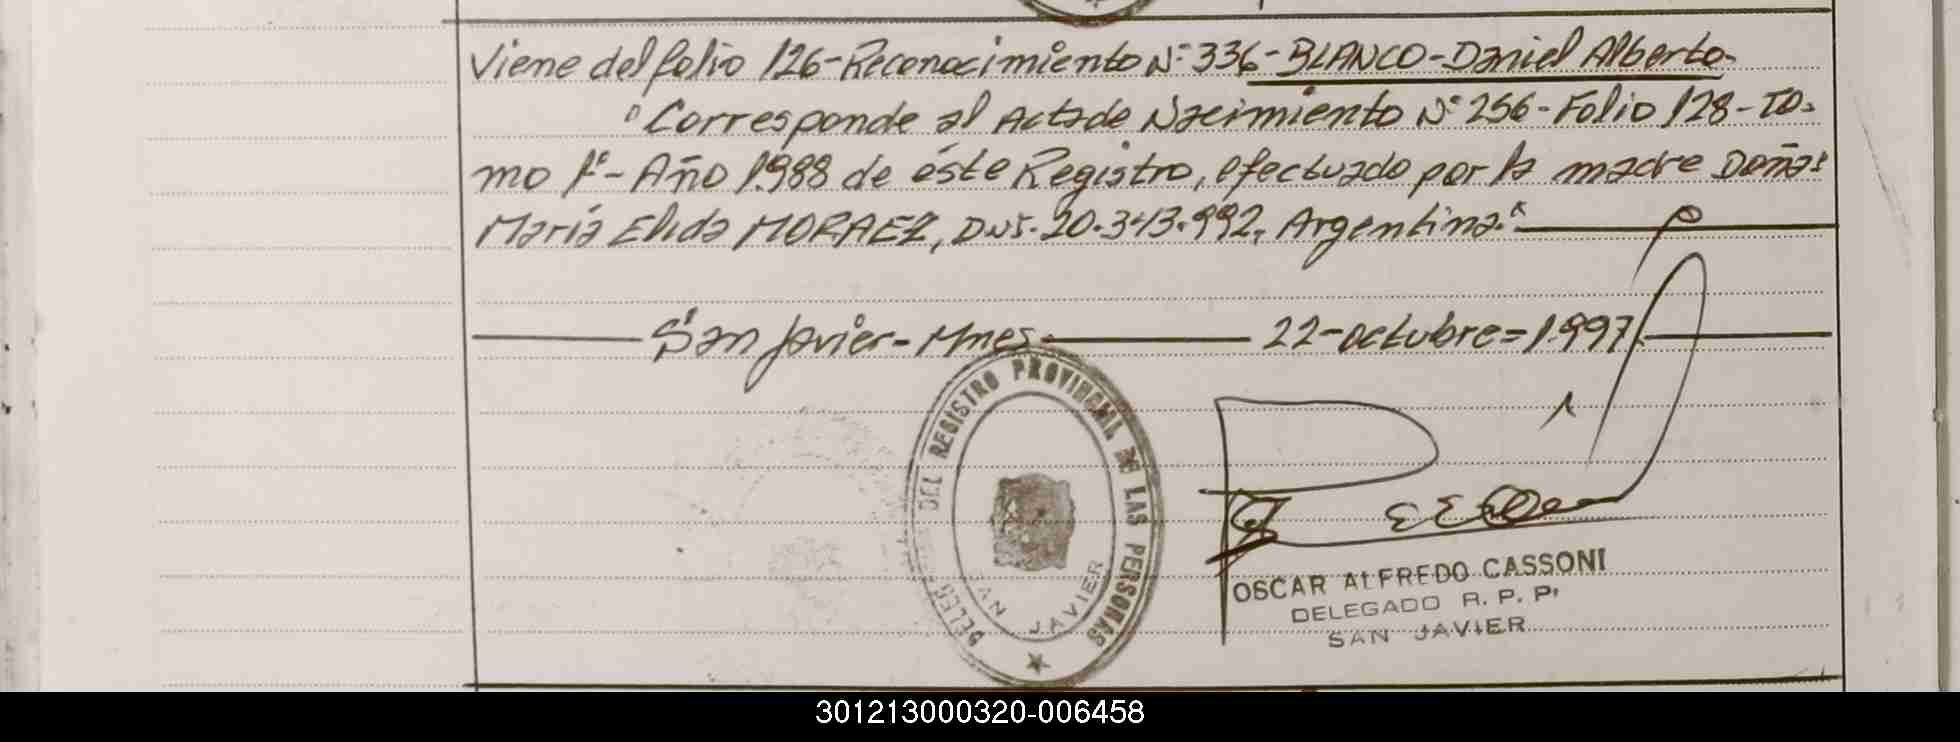 Viene del folio 126-Reconocimiento N° 336-BLANCO-Daniel Alberto-
"Corresponde al Acta de Nacimiento N° 256-Folio 128-To-
mo 1°-Año 1.988 de éste Registro, efectuado por la madre Doña:
María Elida MORAEZ, DNI. 20.343.992, Argentina."
San Javier-Mnes. 22-octubre=1.997/.
DELEG DEL REGISTRO PROVINCIAL DE LAS PERSONAS
SAN JAVIER
OSCAR ALFREDO CASSONI
DELEGADO R. P. P.
SAN JAVIER
301213000320-006458